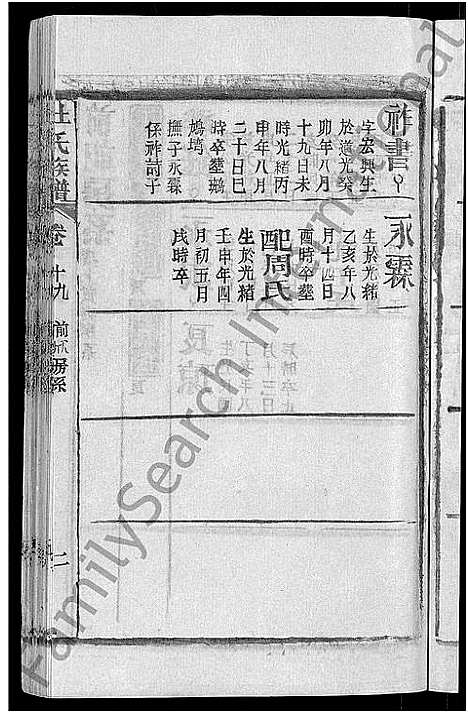 祚書
字宏興生
於道光癸
卯年八月
十九日未
時光緒丙
申年八月
二十日巳
時卒塟鸕
鳩塆
撫子永霖
係祚詩子
永霖
生於光緒
乙亥年八
月十四日
酉時卒塟
配周氏
生於光緒
壬申年四
月初五月
戌時卒
杜氏族譜
卷十九
二
FamilySearch International